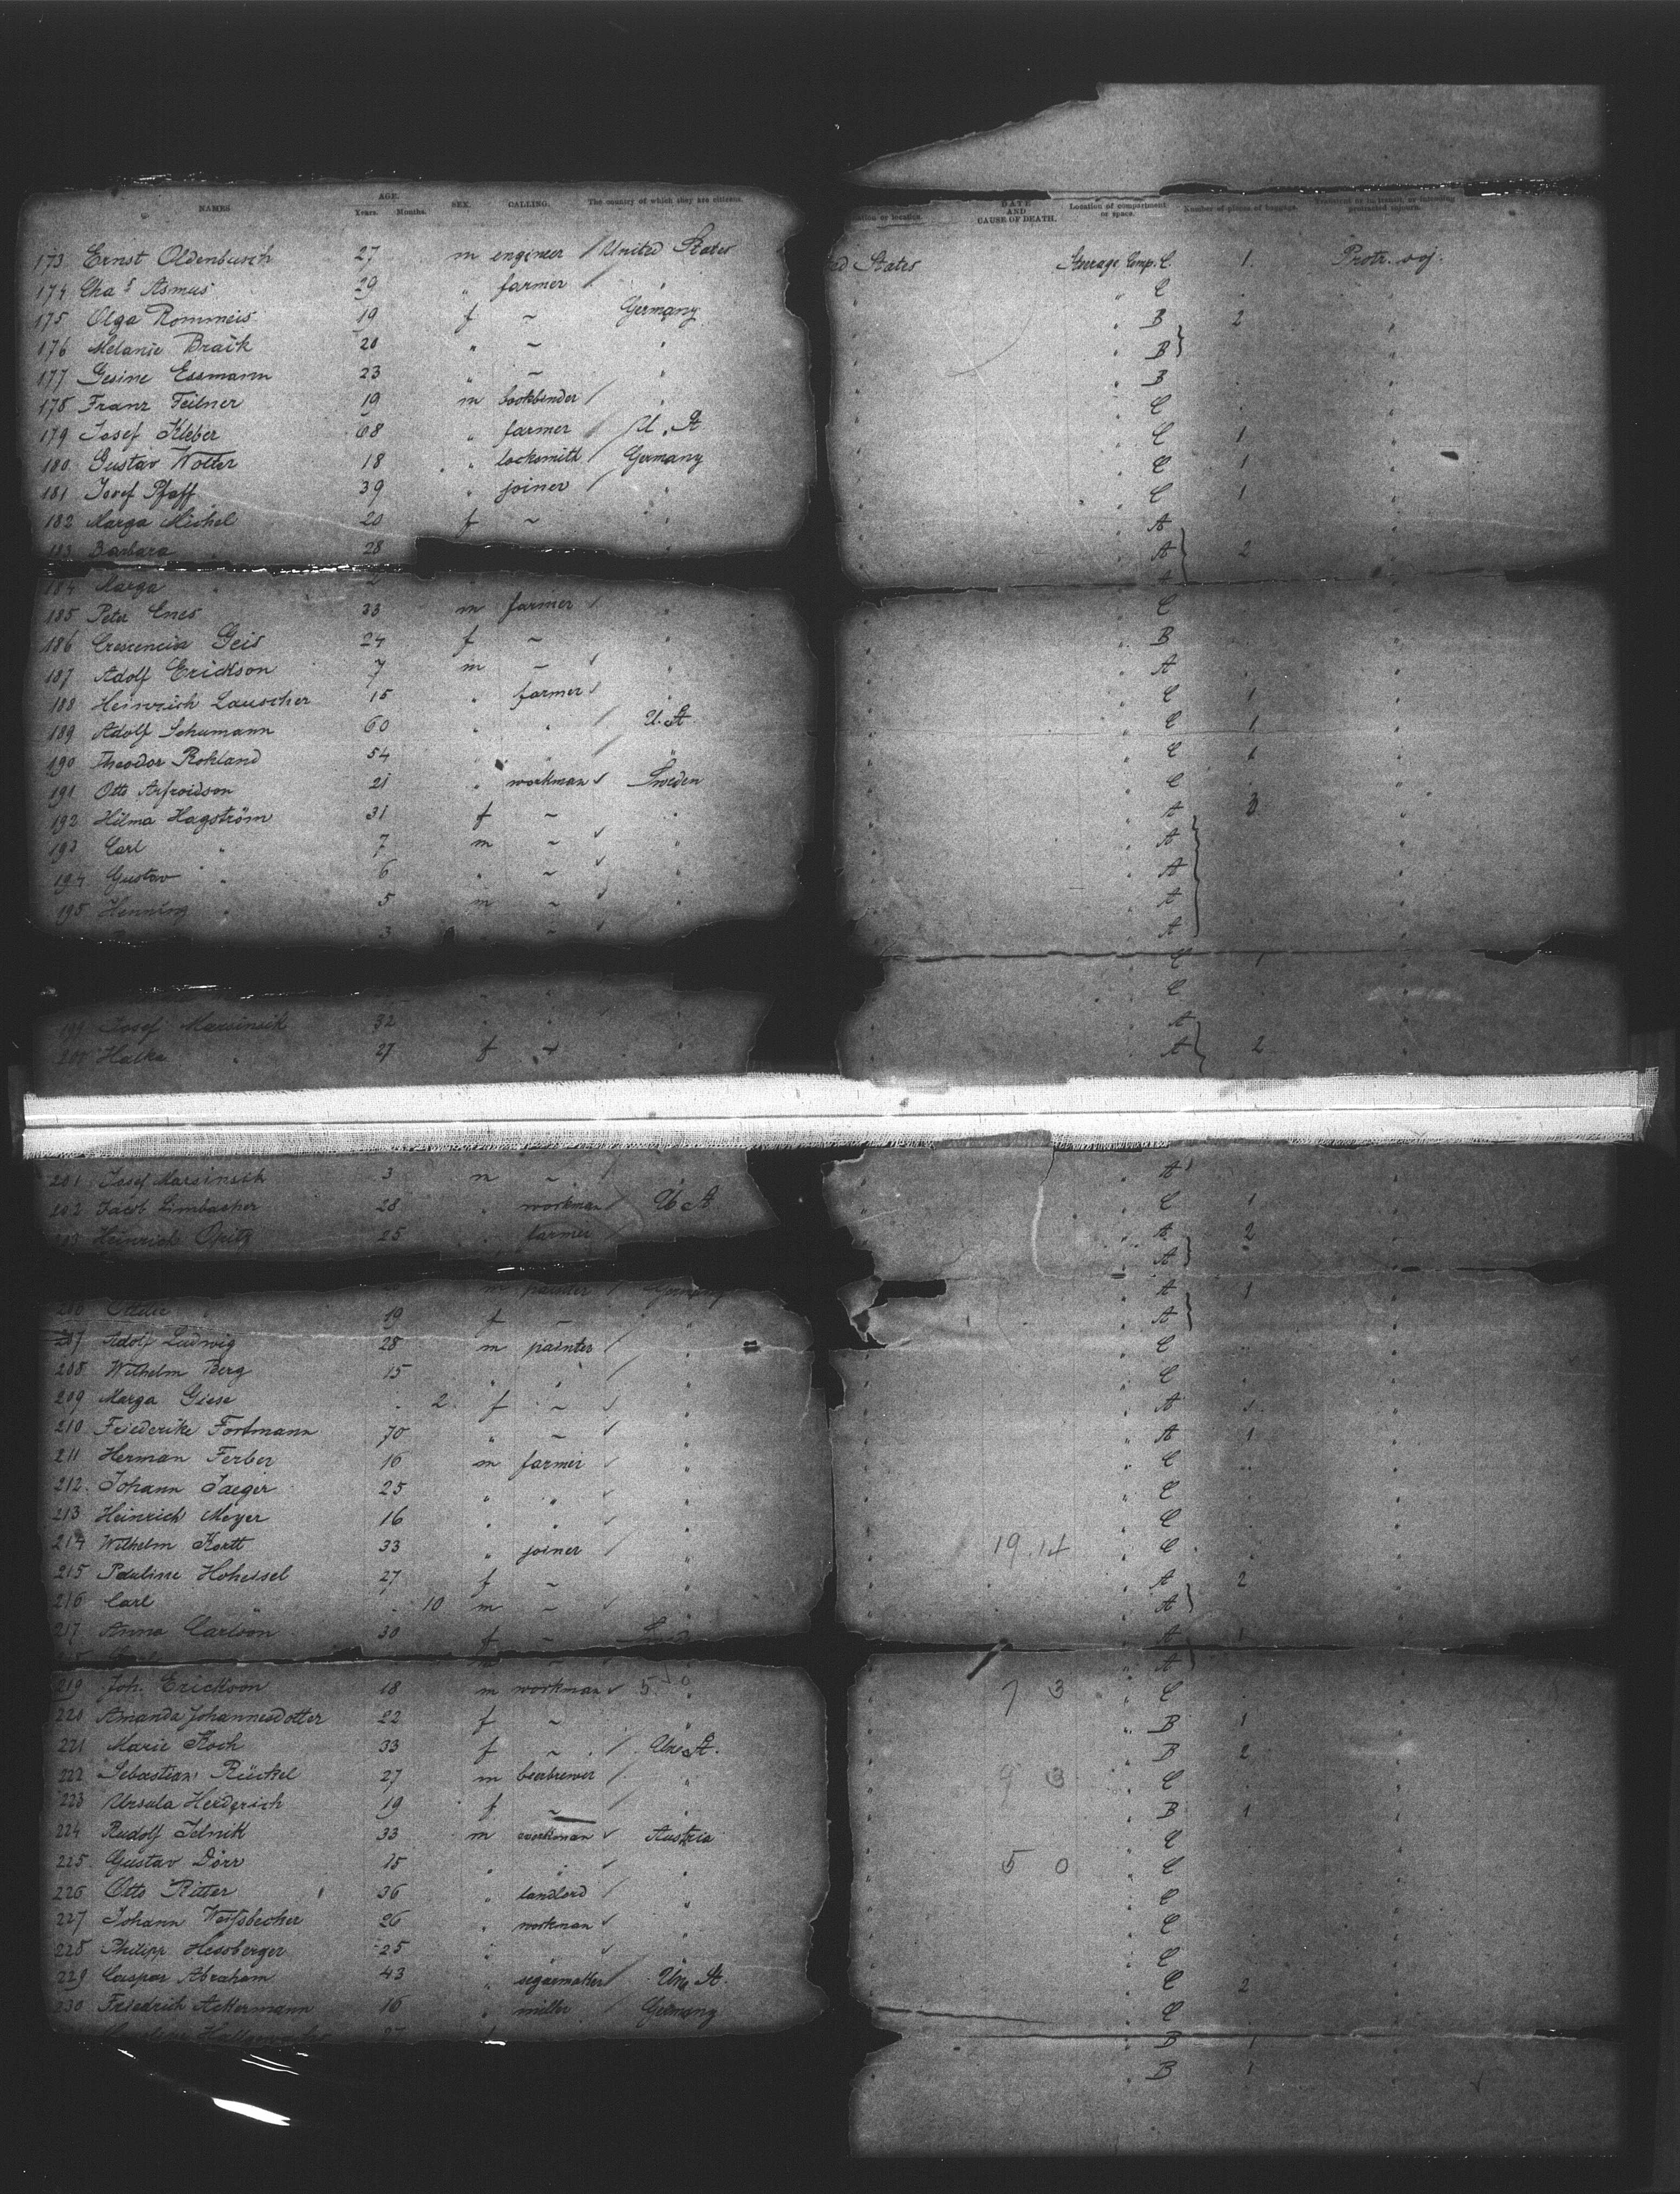 NAMES AGE. Years. Months. SEX. CALLING. The country of which they are citizens.
DATE AND CAUSE OF DEATH. Location of compartment or space. Number of pieces of baggage.
173 Ernst Oldenbusch 27 m engineer / United States ed States Steerage Comp. C. 1. Protr. soj.
174 Chas Asmus 29 " farmer / " " C "
175 Olga Rommeis 19 f ~ Germany " B 2 "
176 Melanie Braik 20 " ~ " " B "
177 Gesine Essmann 23 " ~ " " B "
178 Franz Feilner 19 m bookbinder / " C "
179 Josef Kleber 68 " farmer / U. St " C 1 "
180 Gustav Wolter 18 " locksmith / Germany " C 1 "
181 Josef Pfaff 39 " joiner / " " C 1 "
182 Marga Michel 20 f ~ " A "
183 Barbara " 28 " A 2 "
184 Marga " A
185 Peter Enes 33 m farmer / " " C "
186 Crescencia Geis 24 f ~ " " B "
187 Adolf Erickson 7 m ~ " " A "
188 Heinrich Lauscher 15 " farmer " " C 1 "
189 Adolf Schumann 60 " " / U. St " C 1 "
190 Theodor Rohland 54 " " / " " C 1 "
191 Otto 21 " workman Sweden " C "
192 Hilma Hagström 31 f ~ " " A "
193 Carl " 7 m ~ " " A "
194 Gustav " 6 " ~ " " A "
195 Henning " 5 m ~ " " A "
3 ~ " A "
C 1 "
C "
199 Josef Marsinsik 32 " A "
200 " 27 f " A 2 "
201 Josef Marsinsik 3 m ~ / " A "
202 Jacob Limbacher 28 " workman / U. St " C 1 "
203 Heinrich Opitz 25 " farmer / " A 2 "
" A "
m painter / Germany " A 1 "
206 " 19 f ~ " " A "
207 Adolf Ludwig 28 m painter / " " C "
208. Wilhelm Berg 15 " " / " " C "
209 Marga Giese . 2. f ~ " " A "
210 Friederike Fortmann 70 " ~ " " A 1 "
211 Herman Ferber 16 m farmer " " C "
212. Johann Jaeger 25 " " " " C "
213. Heinrich Meyer 16 " " " " C "
214 Wilhelm Kortt 33 " joiner / " 19.14 " C "
215 Pauline Hoheisel 27 f ~ " " A 2 "
216 Carl " . 10 m ~ " " A "
217 Anna Carlson 30 f ~ " A 1 "
" A "
219 Joh. Erickson 18 m workman " 7 3 " C "
220 Amanda Johannesdotter 22 f ~ " " B 1 "
221 Marie Koch 33 f ~ / Un. St. " B 2 "
222 Sebastian Rückel 27 m beerbrewer / " 9 3 " C "
223 Ursula Herderich 19 f ~ / " " B 1 "
224 Rudolf Jelnik 33 m workman Austria " C "
225. Gustav Dörr 15 " " " 5 0 " C "
226 Otto Ritter 36 " landlord / " " C "
227 Johann Weissbecher 26 " workman " " C "
228 Philipp Hessberger 25 " " " " C "
229 Caspar Abraham 43 " segarmaker / Un. St. " C 2 "
230 Friedrich Ackermann 16 " miller / Germany " C "
" B 1 "
" B 1